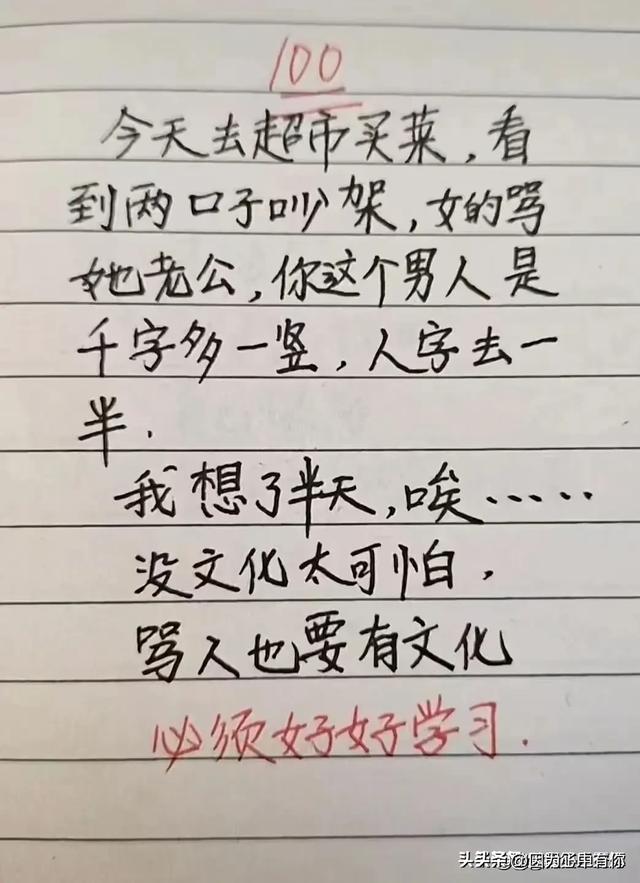 100
今天去超市买菜，看
到两口子吵架，女的骂
她老公，你这个男人是
千字多一竖，人字去一
半.
我想了半天，唉……
没文化太可怕.
骂人也要有文化
必须好好学习.